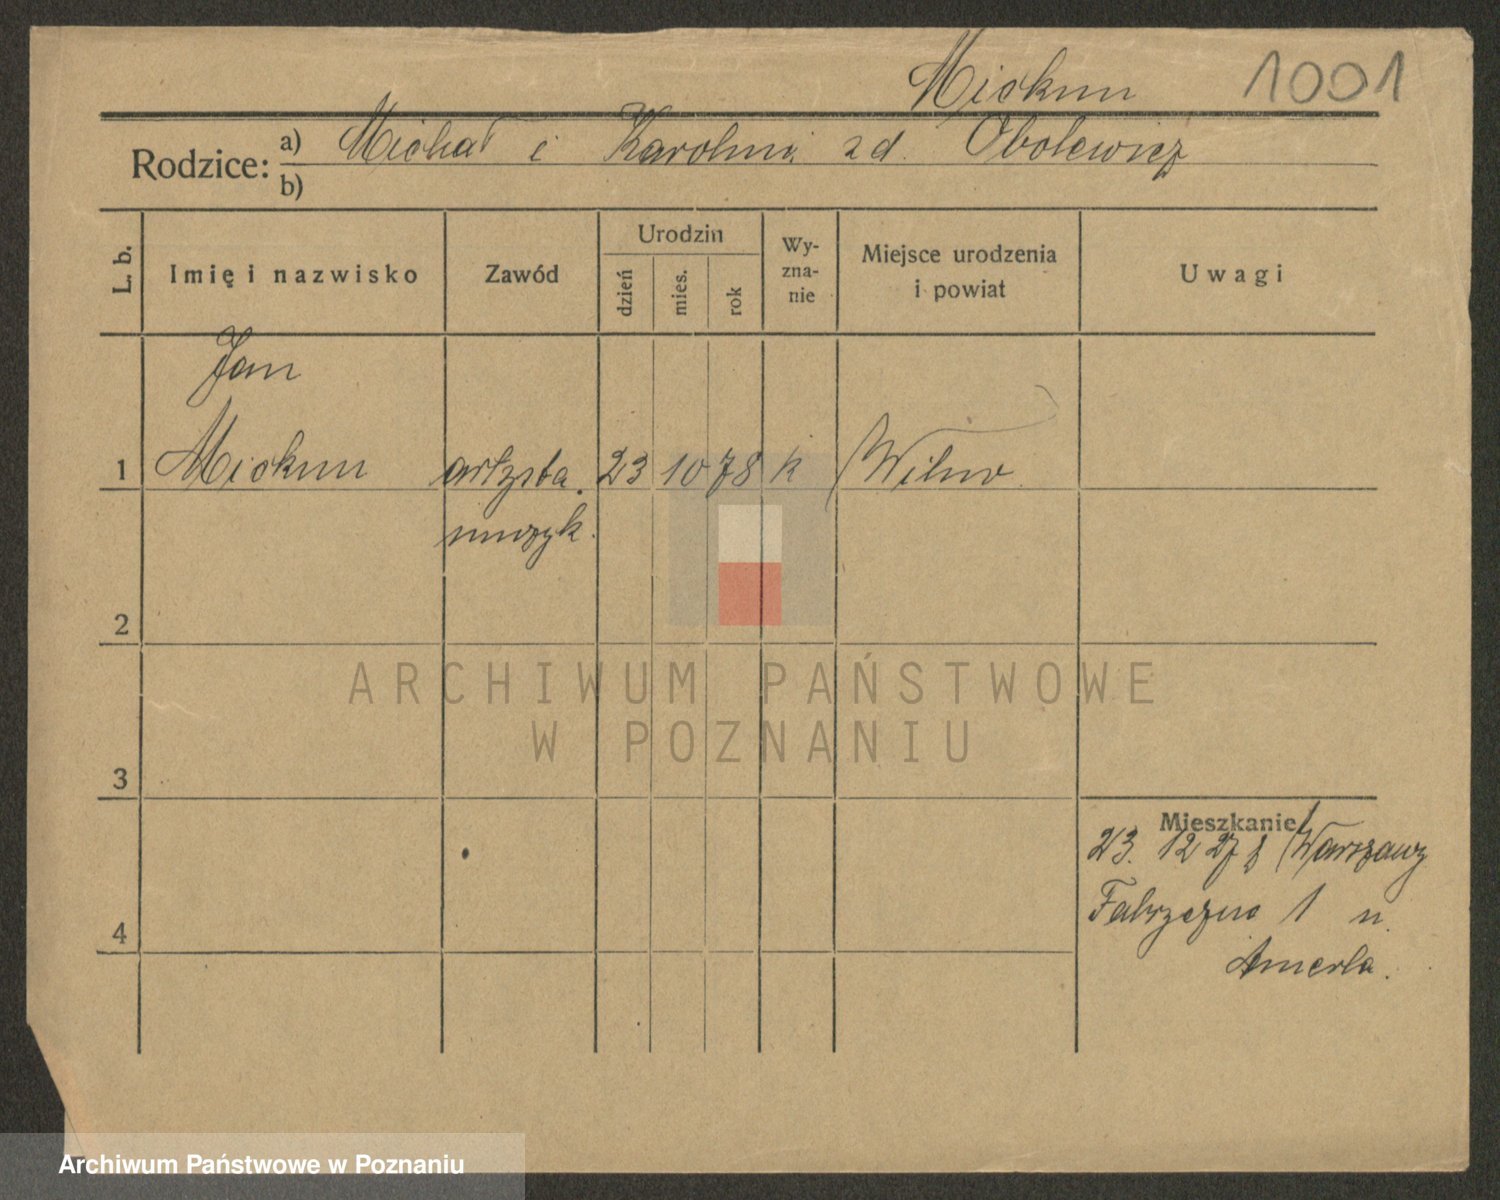 Mickun 1001
Rodzice: a) Michał i Karolina zd. Obolewicz
b)
L. b. Imię i nazwisko Zawód Urodzin dzień mies. rok Wy-zna-nie Miejsce urodzenia i powiat Uwagi
Jan
1 Mickun artysta. 23 10 78 k Wilno
muzyk.
2
ARCHIWUM PAŃSTWOWE
W POZNANIU
3
Mieszkanie
23. 12 27 z Warszawy
Fabryczna 1 u.
4
Amerla.
Archiwum Państwowe w Poznaniu